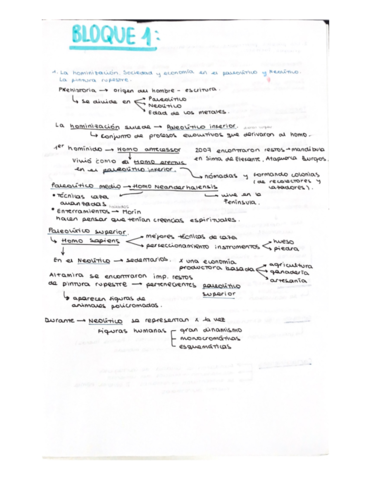 BLOQUE 1:
1. La hominización. Sociedad y economía en el paleolítico y Neolítico.
La pintura rupestre.
Prehistoria → origen del hombre - escritura
↳ se divide en → Paleolítico
Neolítico
Edad de los metales.
La hominización sucede → Paleolítico inferior.
↳ Conjunto de procesos evolutivos que derivaron al homo.
1er homínido → Homo antecessor 2007 encontraron restos → mandíbula
Vivió como el Homo en Sima de Elefante, Atapuerca Burgos.
en el paleolítico inferior.
↳ nómadas y formando colonias
(de recolectores y cazadores).
Paleolítico medio → Homo Neanderthalensis
* Técnicas caza → vive en la
avanzadas Península.
* Enterramientos → Morín
hacen pensar que tenían creencias espirituales.
Paleolítico superior.
↳ Homo sapiens → mejores técnicas de caza
→ perfeccionamiento instrumentos → hueso
→ piedra
En el Neolítico → sedentarios. x una economía → agricultura
productora basada → ganadería
→ artesanía
Altamira se encontraron imp. restos
de pintura rupestre → pertenecientes paleolítico
superior
↳ aparecen figuras de
animales policromadas.
Durante → Neolítico se representan x 1a vez
figuras humanas - gran dinamismo
- monocromáticas
- esquemáticas